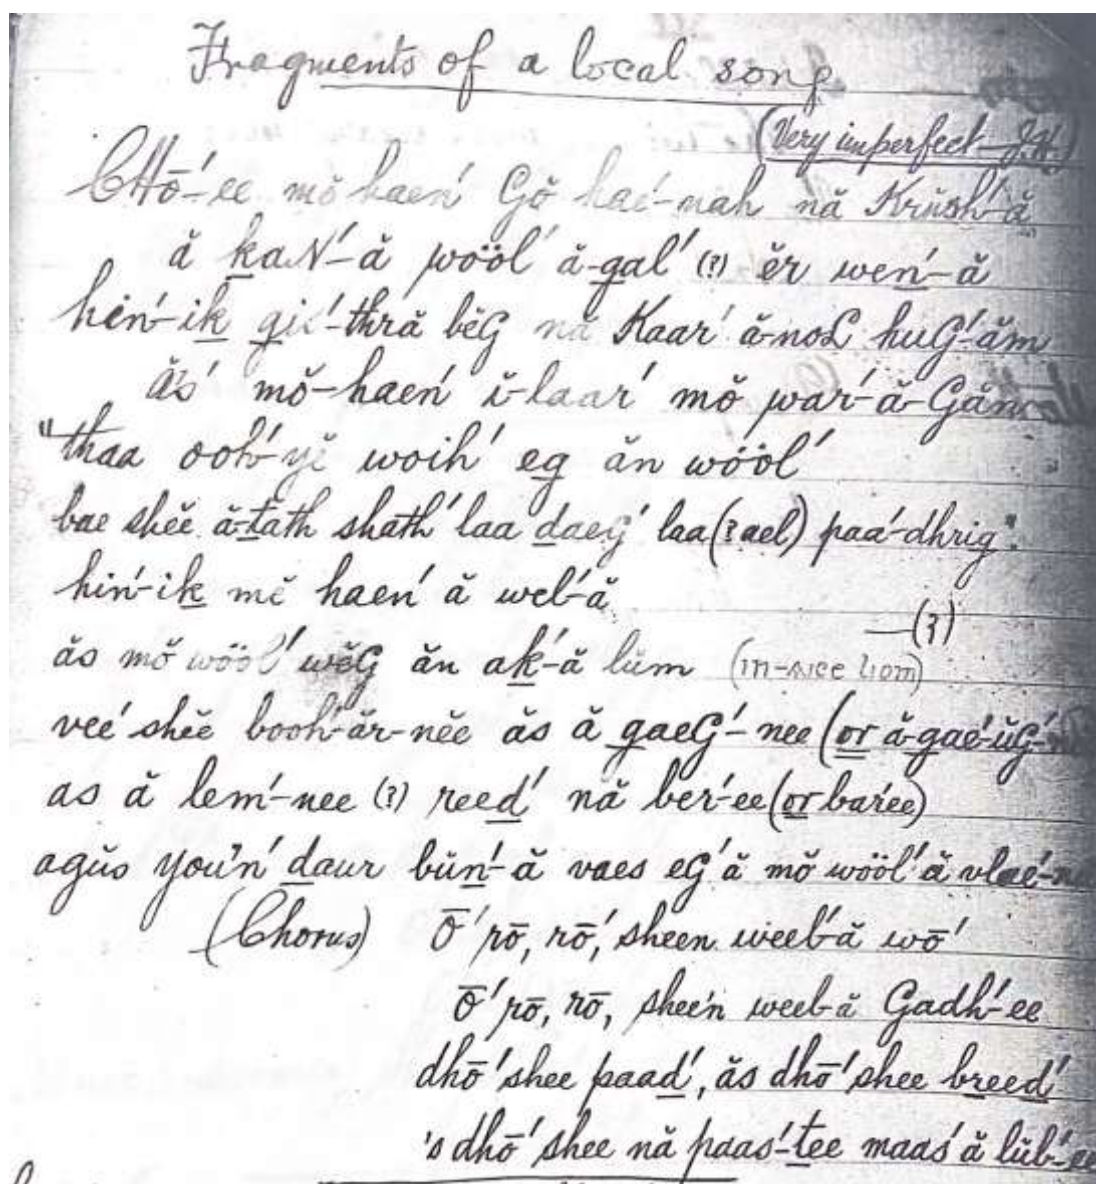 Fragments of a local song
(Very imperfect – J.H.)
CHō´-ee mŏ haen´ Gŏ haé-nah nă Krŭsh´-ă
ă kaN´-ă wööl´ ă-gal´ (?) ĕr wen´-ă
hin´-ik gis´-thră bĕG nă Kaar´ ă-noL huG´-ăm
ăs´ mŏ-haen´ ĭ-laar´ mŏ war´-ă-Găn
"thaa ooh´-yĕ woih´ eg ăn wööl´
bae shĕe ă-tath shath´ laa daeG´ laa (?ael) paa´-dhrig".
hin´-ik mĕ haen´ ă wel´-ă
—(?)
ăs mŏ wööl´ wĕG ăn ak´-ă lŭm (in-aice liom)
vee´ shĕe booh´-ăr-nĕe ăs ă gaeG´-nee (or ă-gaé-ŭG´-
as ă lem´-nee (?) reed´ nă ber´-ee (or bar´ee)
agŭs you'n´ daur bŭn´-ă vaes eG´ă mŏ wööl´ă vlaé-
(Chorus) Ō´ rō, rō,´ sheen weel´-ă wō´
ō´ rō, rō, sheen weel-ă Gadh´-ee
dhō´ shee paad´, ăs dhō´ shee breed´
's dhō´ shee nă paas´-tee maas´ă lŭb´-ee